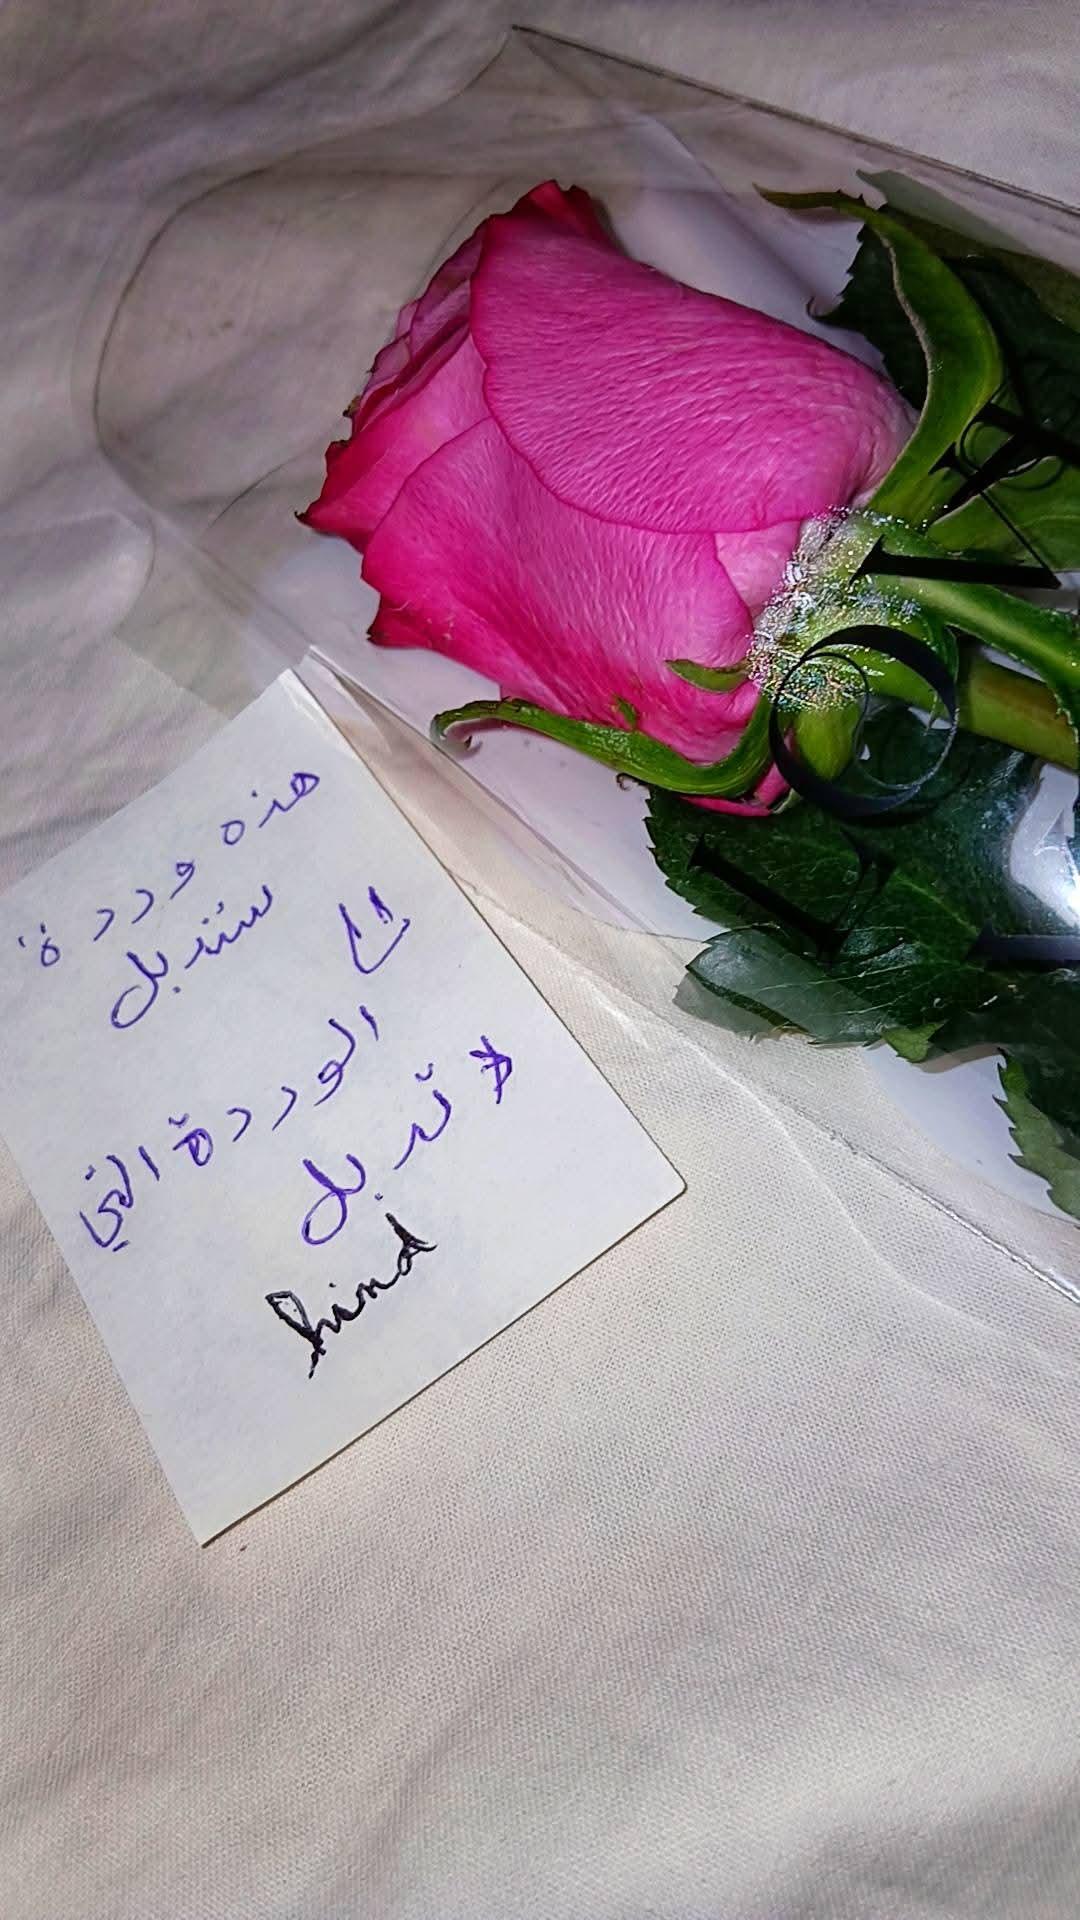 هذه وردة
ستذبل
الوردة التي
لا تذبل
hind